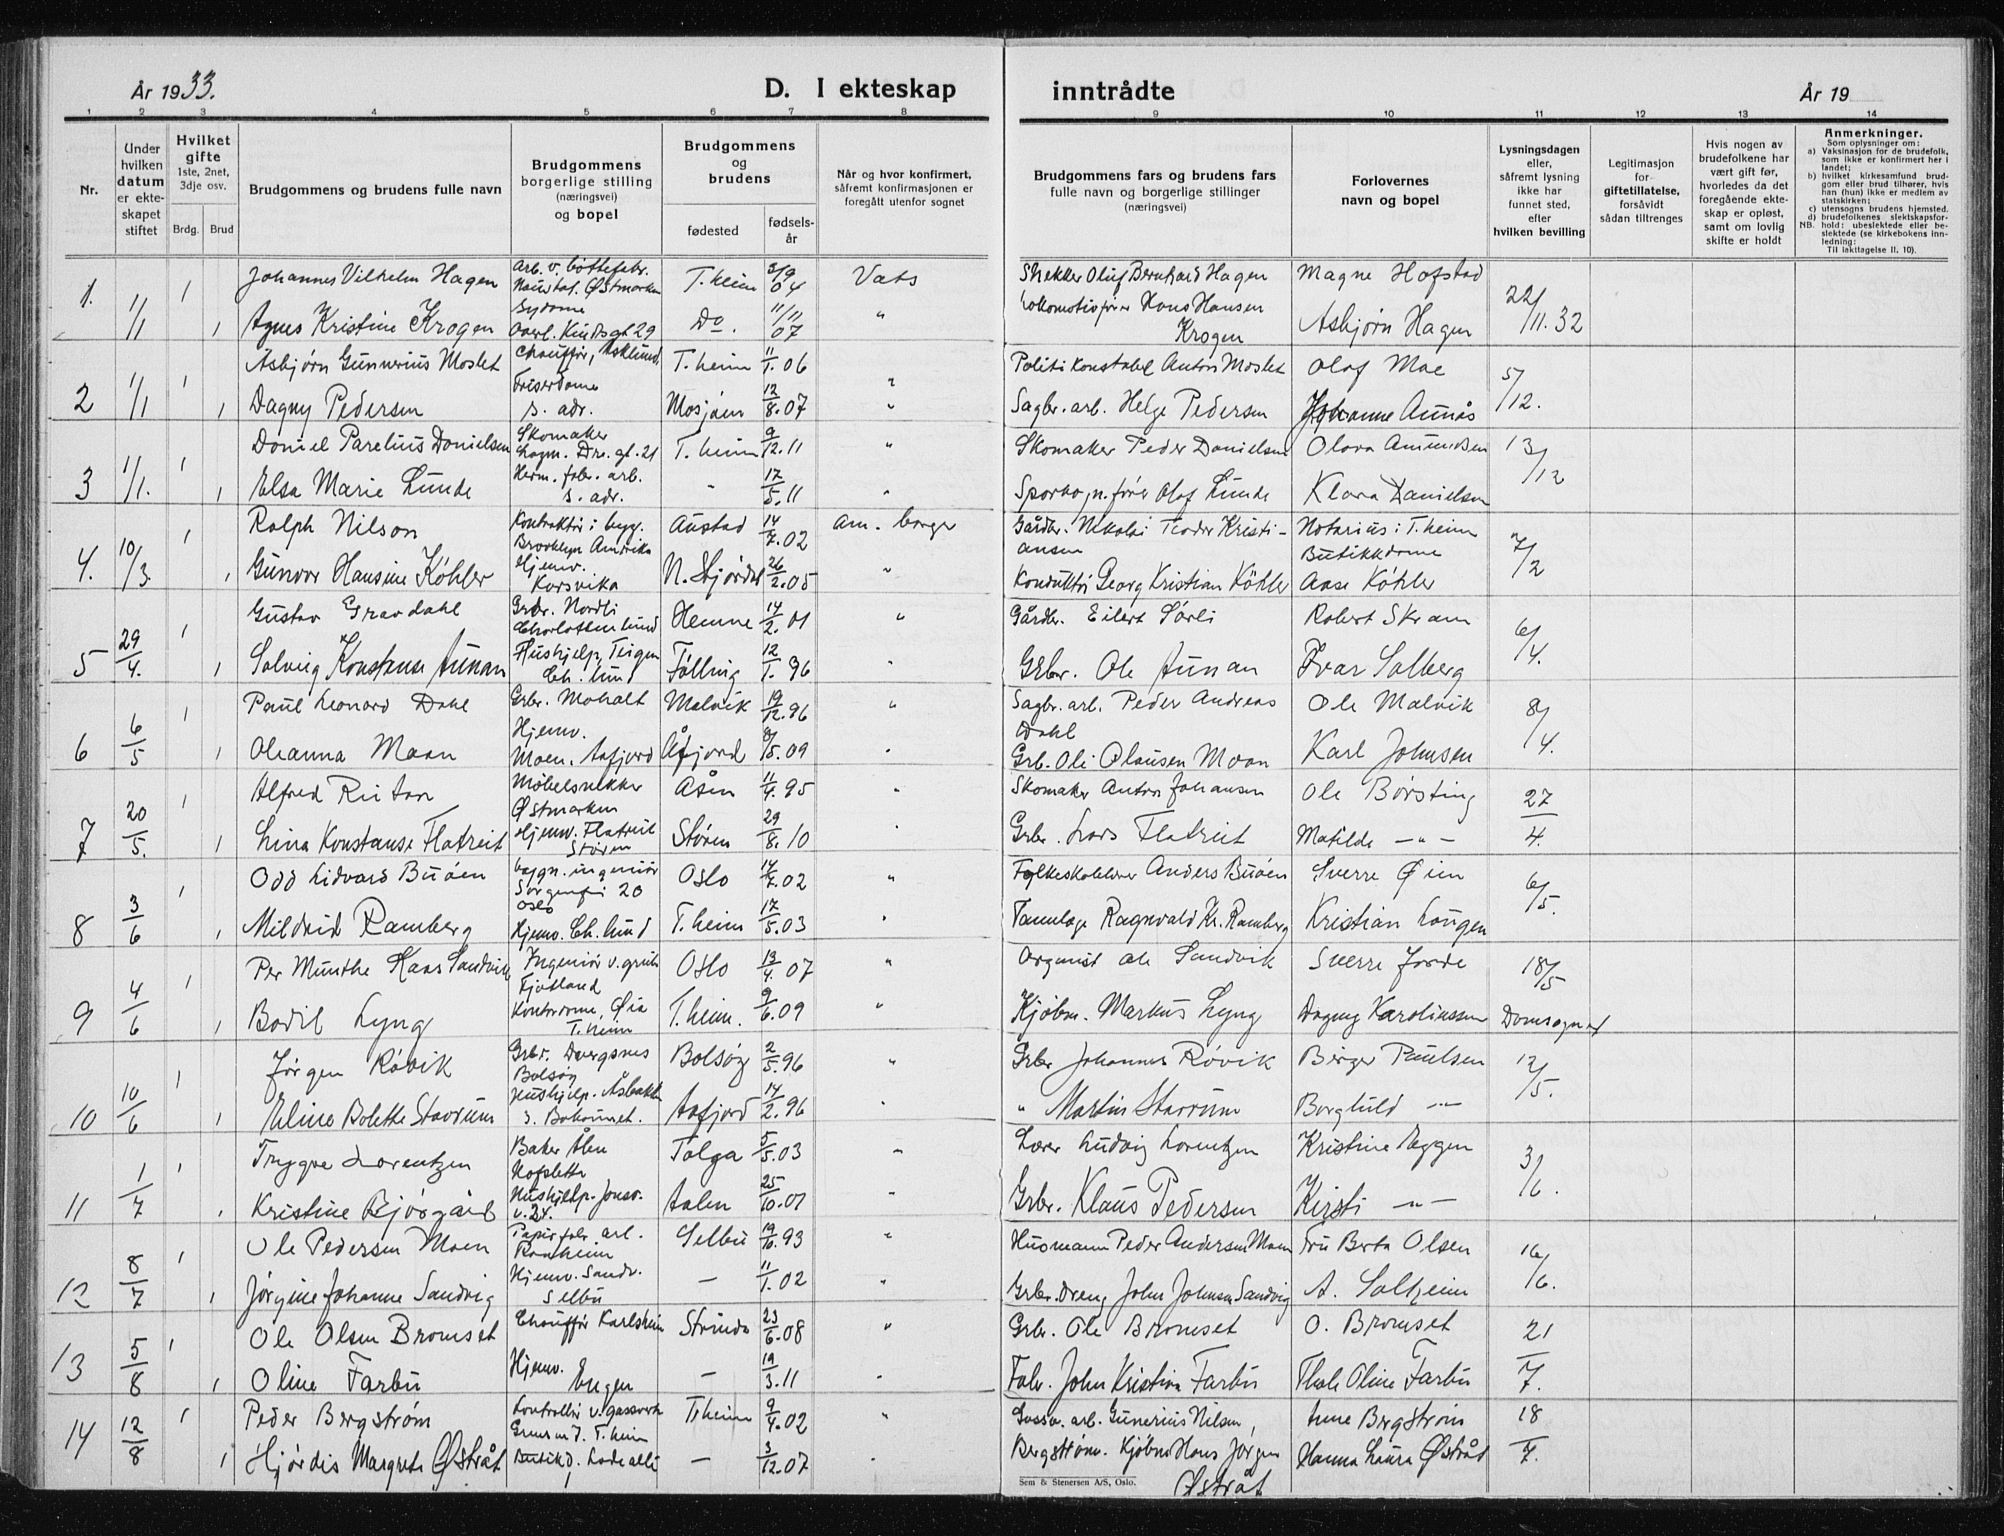 År 1933.
D. I ekteskap inntrådte
År 19
1 2 3 4 5 6 7 8 9 10 11 12 13 14
Nr.
Under hvilken datum er ekteskapet stiftet
Hvilket gifte 1ste, 2net, 3dje osv.
Brdg. Brud
Brudgommens og brudens fulle navn
Brudgommens borgerlige stilling (næringsvei) og bopel
Brudgommens og brudens
fødested
fødselsår
Når og hvor konfirmert, såfremt konfirmasjonen er foregått utenfor sognet
Brudgommens fars og brudens fars fulle navn og borgerlige stillinger (næringsvei)
Forlovernes navn og bopel
Lysningsdagen eller, såfremt lysning ikke har funnet sted, efter hvilken bevilling
Legitimasjon for giftetillatelse, forsåvidt sådan tiltrenges
Hvis nogen av brudefolkene har vært gift før, hvorledes da det foregående ekteskap er opløst, samt om lovlig skifte er holdt
Anmerkninger.
Som oplysninger om:
a) Vaksinasjon for de brudefolk, som ikke er konfirmert her i landet;
b) hvilket kirkesamfund brudgom eller brud tilhører, hvis han (hun) ikke er medlem av statskirken;
c) utensogns brudens hjemsted.
d) brudefolkenes slektskapsforhold: ubeslektede eller beslektede (se kirkebokens innledning:
NB. Til iakttagelse II. 10).
1. 1/1 Johannes Vilhelm Hagen Arb. v. bøttefabr. Østmarken T.heim 3/9 04 Vats Snekker Oluf Bernhard Hagen Magne Hofstad 22/11. 32
Agnes Kristine Krogen Sydame Overl. Kindts gt 29 Do. 11/11 07 " Lokomotivfører Hans Hansen Krogen Asbjørn Hagen
2 1/1 Asbjørn Gunnerius Moslet Chauffør, Asklund T.heim 11/1. 06 " Politikonstabel Anton Moslet Olaf Moe 5/12.
Dagny Pedersen Friserdame s. adr. Mosjøen 12/8. 07 " Sagbr. arb. Helge Pedersen Johanne Aunås
3 1/1. Daniel Parelius Danielsen Skomaker gt. 21 T.heim 9/12. 11 " Skomaker Peder Danielsen Olava Amundsen 13/12
Elsa Marie Lunde Herm. fabr. arb. s. adr. " 17/5. 11 " Sporvogn.fører Olaf Lunde Klara Danielsen
4. 10/3. Ralph Nilson Kontraktør i bygg. Brooklyn Amerika Austad 14/7. 02 Am. borger Gårdbr. Nikolai Teodor Kristiansen Notarius i T.heim 7/2
Gunvor Hansine Køhler Hjemv. Korsvika N. Stjørdal 26/2. 05 " Konduktør Georg Kristian Köhler Butikkdame Aase Køhler
5 29/4. Gustav Gravdahl Grbr. Nordli Charlottenlund Hemne 14/2. 01 " Gårdbr. Eilert Sørli Robert Skram 6/4.
Solveig Konstanse Aunan Hushjelp, Teigen Ch. lund Følling 12/1. 96 " Grbr. Ole Aunan Ivar Solberg
6 6/5 Paul Leonard Dahl Grbr. Moholt Malvik 19/12. 96 " Sagbr. arb. Peder Andreas Dahl Ole Malvik 8/4.
Oleanna Moan Hjemv. Moen, Aafjord Åfjord 8/5. 09 " Grb. Oli Olausen Moan Karl Johnsen
7 20/5. Alfred Ristan Møbelsnekker Østmarken Åsen 11/4. 95 " Skomaker Anton Johansen Ole Børsting 27/4.
Lina Konstanse Flatreit Hjemv. Flatreit Støren Støren 29/8. 10 " Grbr. Lars Flatreit Matilde — " —
8 3/6 Odd Lidvard Buøen bygn. ingeniør Sorgenfri 20 Oslo Oslo 14/7. 02 " Folkeskolelærer Anders Buøen Sverre Øien 6/5.
Mildrid Ramberg Hjemv. Ch. lund T.heim 17/5. 03 " Tannlæge Ragnvald Kr. Ramberg Kristian Langen
9 4/6 Per Munthe Kaas Sandvik Ingeniør v. grube Fjotland Oslo 13/4. 07 " Organist Ole Sandvik Sverre Forde 18/5
Bodil Lyng Kontordame, Øia T.heim T.heim. 9/6. 09 " Kjøbm. Markus Lyng Dagny Karolinssen Domsognet
10 10/6 Jørgen Røvik Grbr. Dvergsnes Bolsøy Bolsøy 2/5. 96 " Grbr Johannes Røvik Birger Paulsen 12/5.
Eline Bolette Stavrum Hushjelp. Åsbakken Aafjord 14/2. 96 " " Martin Stavrum Borghild — " —
11 1/7 Trygve Lorentzen Baker Ålen Hofsletta Tolga 5/5. 03 " Lærer Ludvig Lorentzen Kristine Eggen 3/6.
Kristine Bjørgård Hushjelp. Jonsv. v. 24. Aalen 25/10. 01 " Grbr. Klaus Pedersen Kirsti — " —
12 8/7 Ole Pedersen Moen Papirfabr. arb. Ranheim Selbu 19/10. 93 " Husmann Peder Andersen Moen Fru Berta Olsen 16/6.
Jørgine Johanne Sandvig Hjemv. Sandv. Selbu — 11/1. 02 " Grbr. dreng John Johnsen Sandvig A. Solheim
13 5/8 Ole Olsen Bromset Chauffør Karlsheim Strinda 23/6. 08 " Grbr. Ole Bromset O. Bromset 21/7.
Oline Farbu Hjemv. Engen — 19/3. 11 " Fabr. John Kristian Farbu Thale Oline Farbu
14 12/8 Peder Bergstrøm Kontrollør v. gassverk T.heim T.heim 9/4. 02 " Gassv. arb. Gunerius Nilsen Bergstrøm. Anne Bergstrøm 18/7.
Hjørdis Margrete Østråt Butikkd. Lade allé — 3/12. 07 " Kjøbm Hans Jørgen Østråt Hanna Laura Østråt
Sem & Stenersen A/S, Oslo.